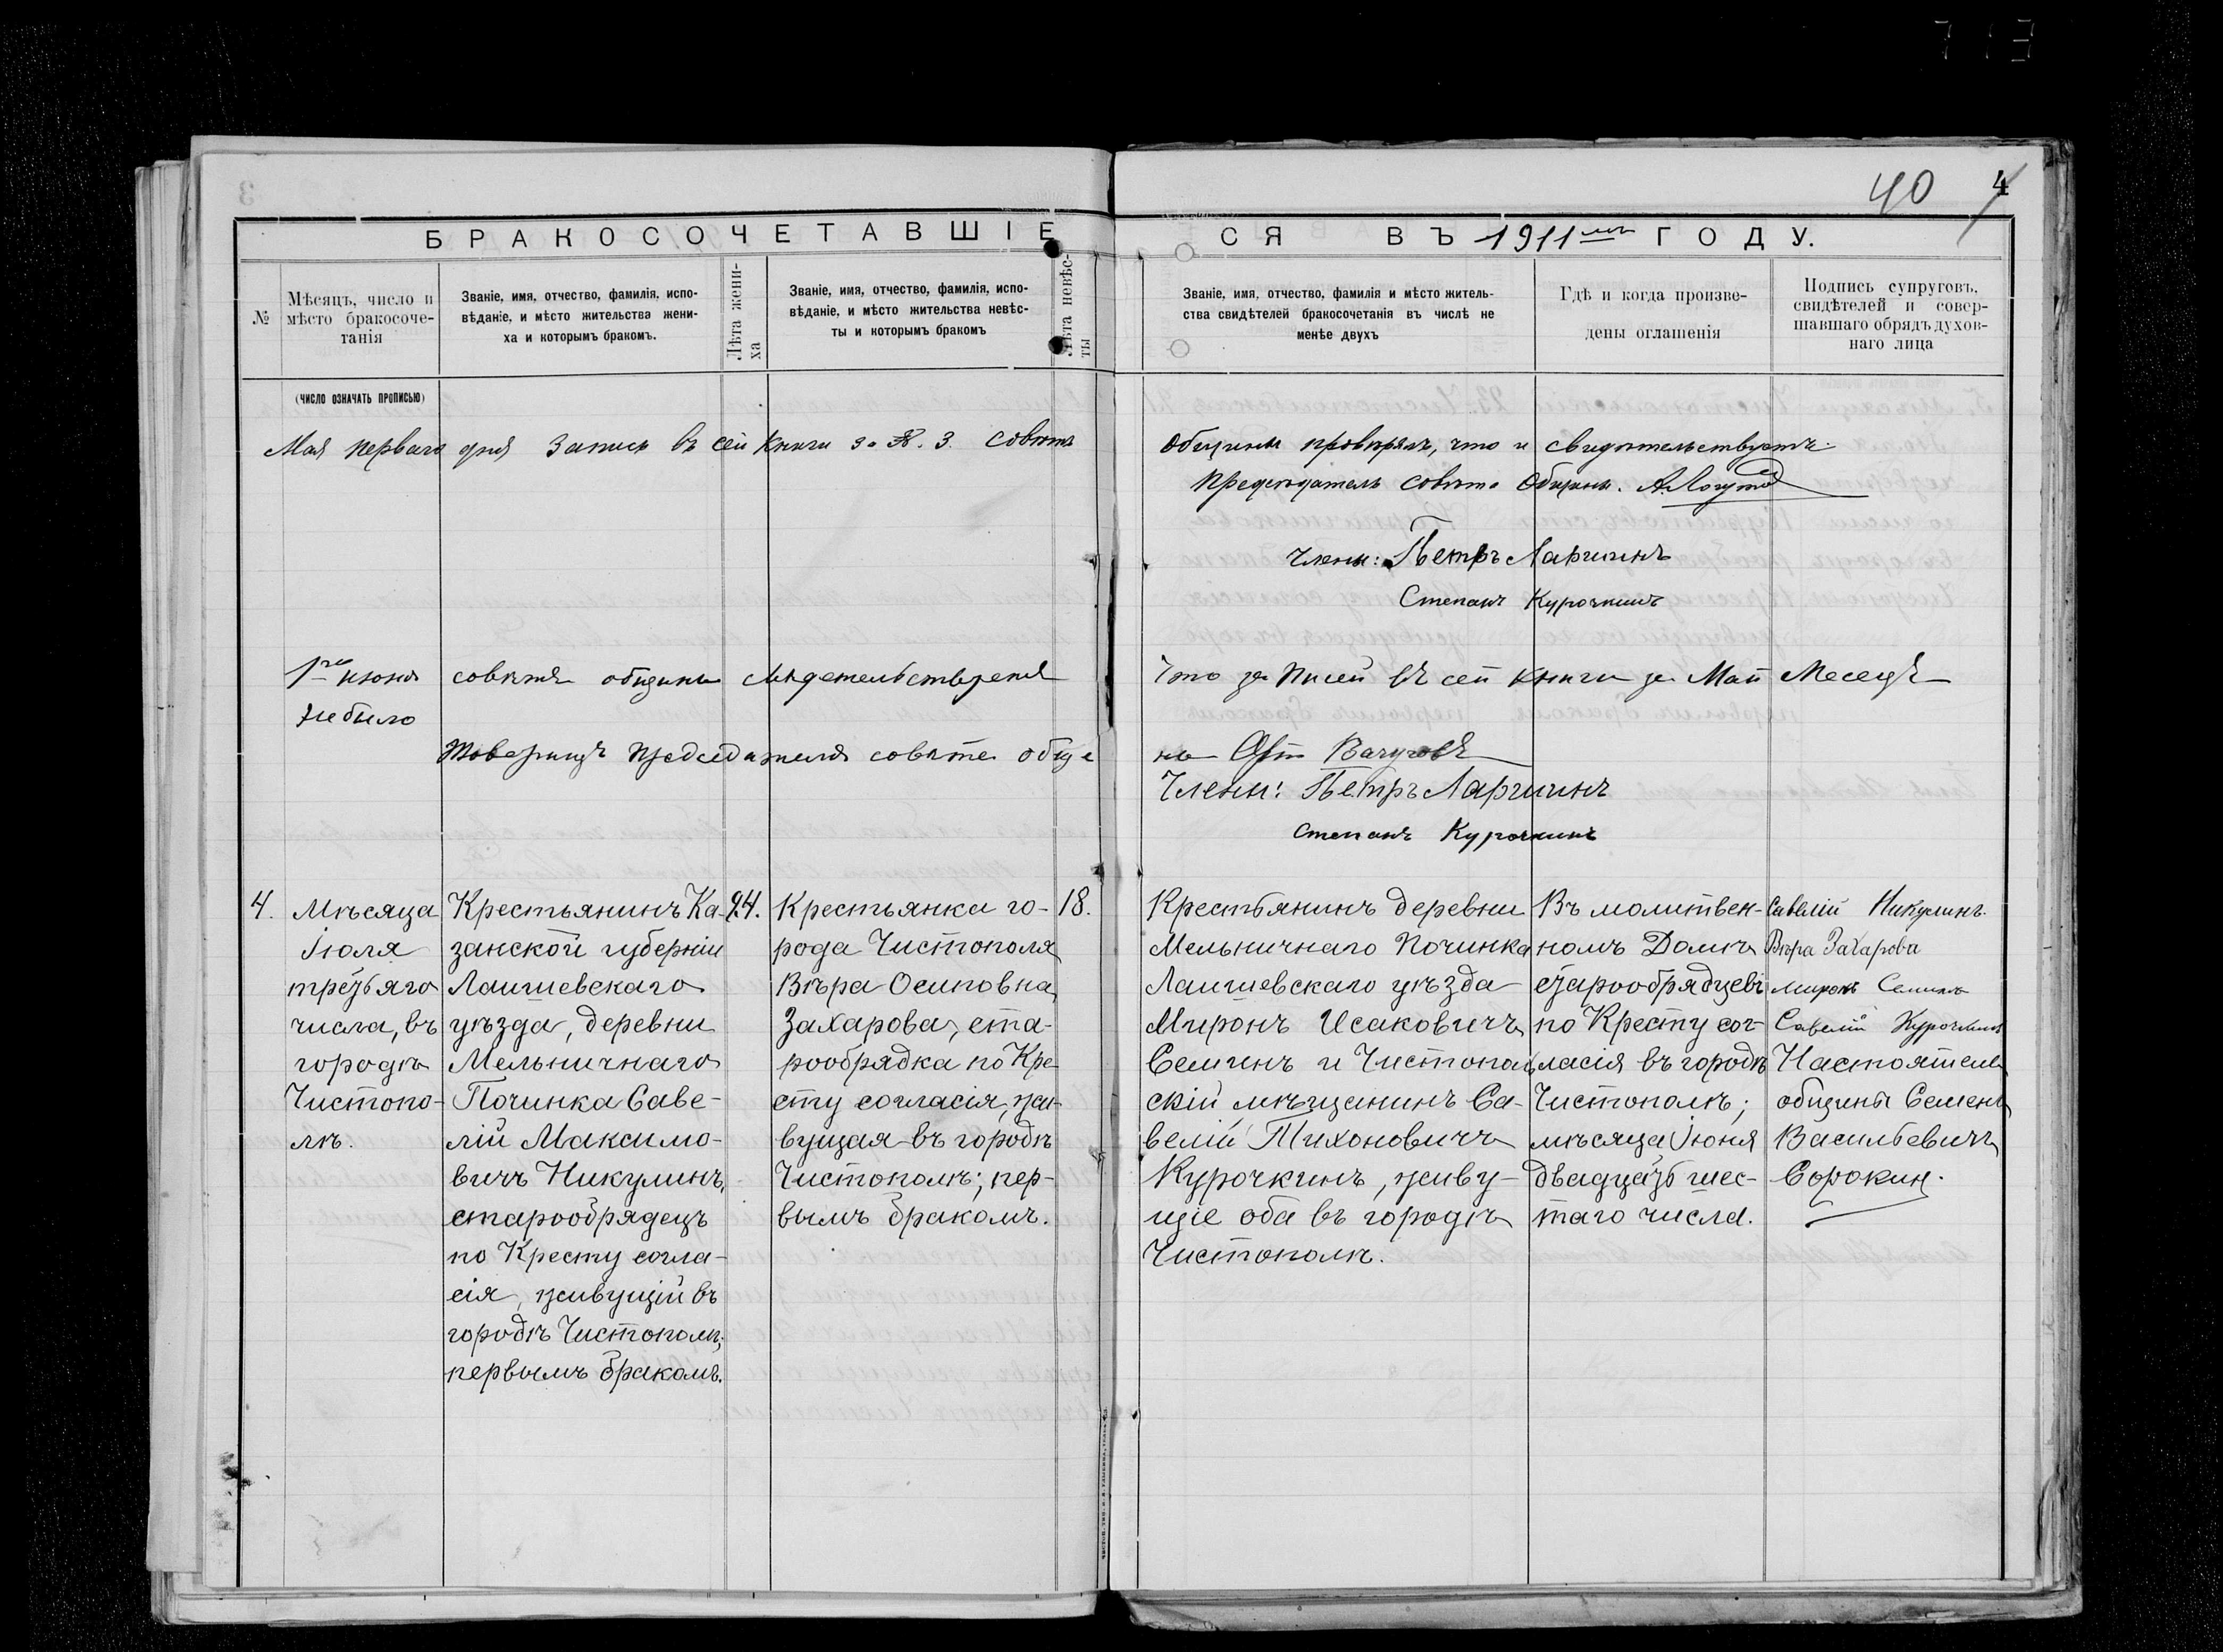 40 4
БРАКОСОЧЕТАВШІЕСЯ ВЪ 1911мъ ГОДУ.
№
Мѣсяцъ, число и
мѣсто бракосоче-
танія
Званіе, имя, отчество, фамилія, испо-
вѣданіе, и мѣсто жительства жени-
ха и которымъ бракомъ.
Лѣта жени-
ха
Званіе, имя, отчество, фамилія, испо-
вѣданіе, и мѣсто жительства невѣс-
ты и которымъ бракомъ
Лѣта невѣс-
ты
Званіе, имя, отчество, фамилія и мѣсто житель-
ства свидѣтелей бракосочетанія въ числѣ не
менѣе двухъ
Гдѣ и когда произве-
дены оглашенія
Подпись супруговъ,
свидѣтелей и совер-
шавшаго обрядъ духов-
наго лица
(ЧИСЛО ОЗНАЧАТЬ ПРОПИСЬЮ)
Мая перваго дня Запись въ сей Книги за №. 3. совѣтъ Общины провѣрялъ, что и свидѣтельствуетъ.
Предсѣдатель совѣта Общины.
Члены: Петръ Ларишинъ
Степанъ Курочкинъ
1го июня совѣтъ общины что за писей въ сей книги за Май Месецъ
не было
Товарищъ председателя совѣта общи
Члены: Петръ Ларишинъ
Степанъ Курочкинъ
4.
Мѣсяца
Іюля
третьяго
числа, въ
городѣ
Чистопо-
лѣ.
Крестьянинъ Ка-
занской губерніи
Лаишевскаго
уѣзда, деревни
Мельничнаго
Починка Саве-
лій Максимо-
вичъ Никулинъ,
старообрядецъ
по Кресту согла-
сія, живущій въ
городѣ Чистополѣ;
первымъ бракомъ.
24.
Крестьянка го-
рода Чистополя
Вѣра Осиповна
Захарова, ста-
рообрядка по Кре-
сту согласія, жи-
вущая въ городѣ
Чистополѣ; пер-
вымъ бракомъ.
18.
Крестьянинъ деревни
Мельничнаго Починка
Лаишевскаго уѣзда
Миронъ Исаковичъ
Семинъ и Чистополь
скій мѣщанинъ Са-
велій Тихоновичъ
Курочкинъ, живу-
щіе оба въ городѣ
Чистополѣ.
Въ молитвен-
номъ Домѣ
старообрядцевъ
по Кресту сог-
ласія въ городѣ
Чистополѣ;
мѣсяца Іюня
двадцать шес-
таго числа.
Савелій Никулинъ.
Вѣра Захарова
миронъ Семинъ
Савелій Курочкинъ
Настоятель
общины Семенъ
Васильевичъ
Сорокин.